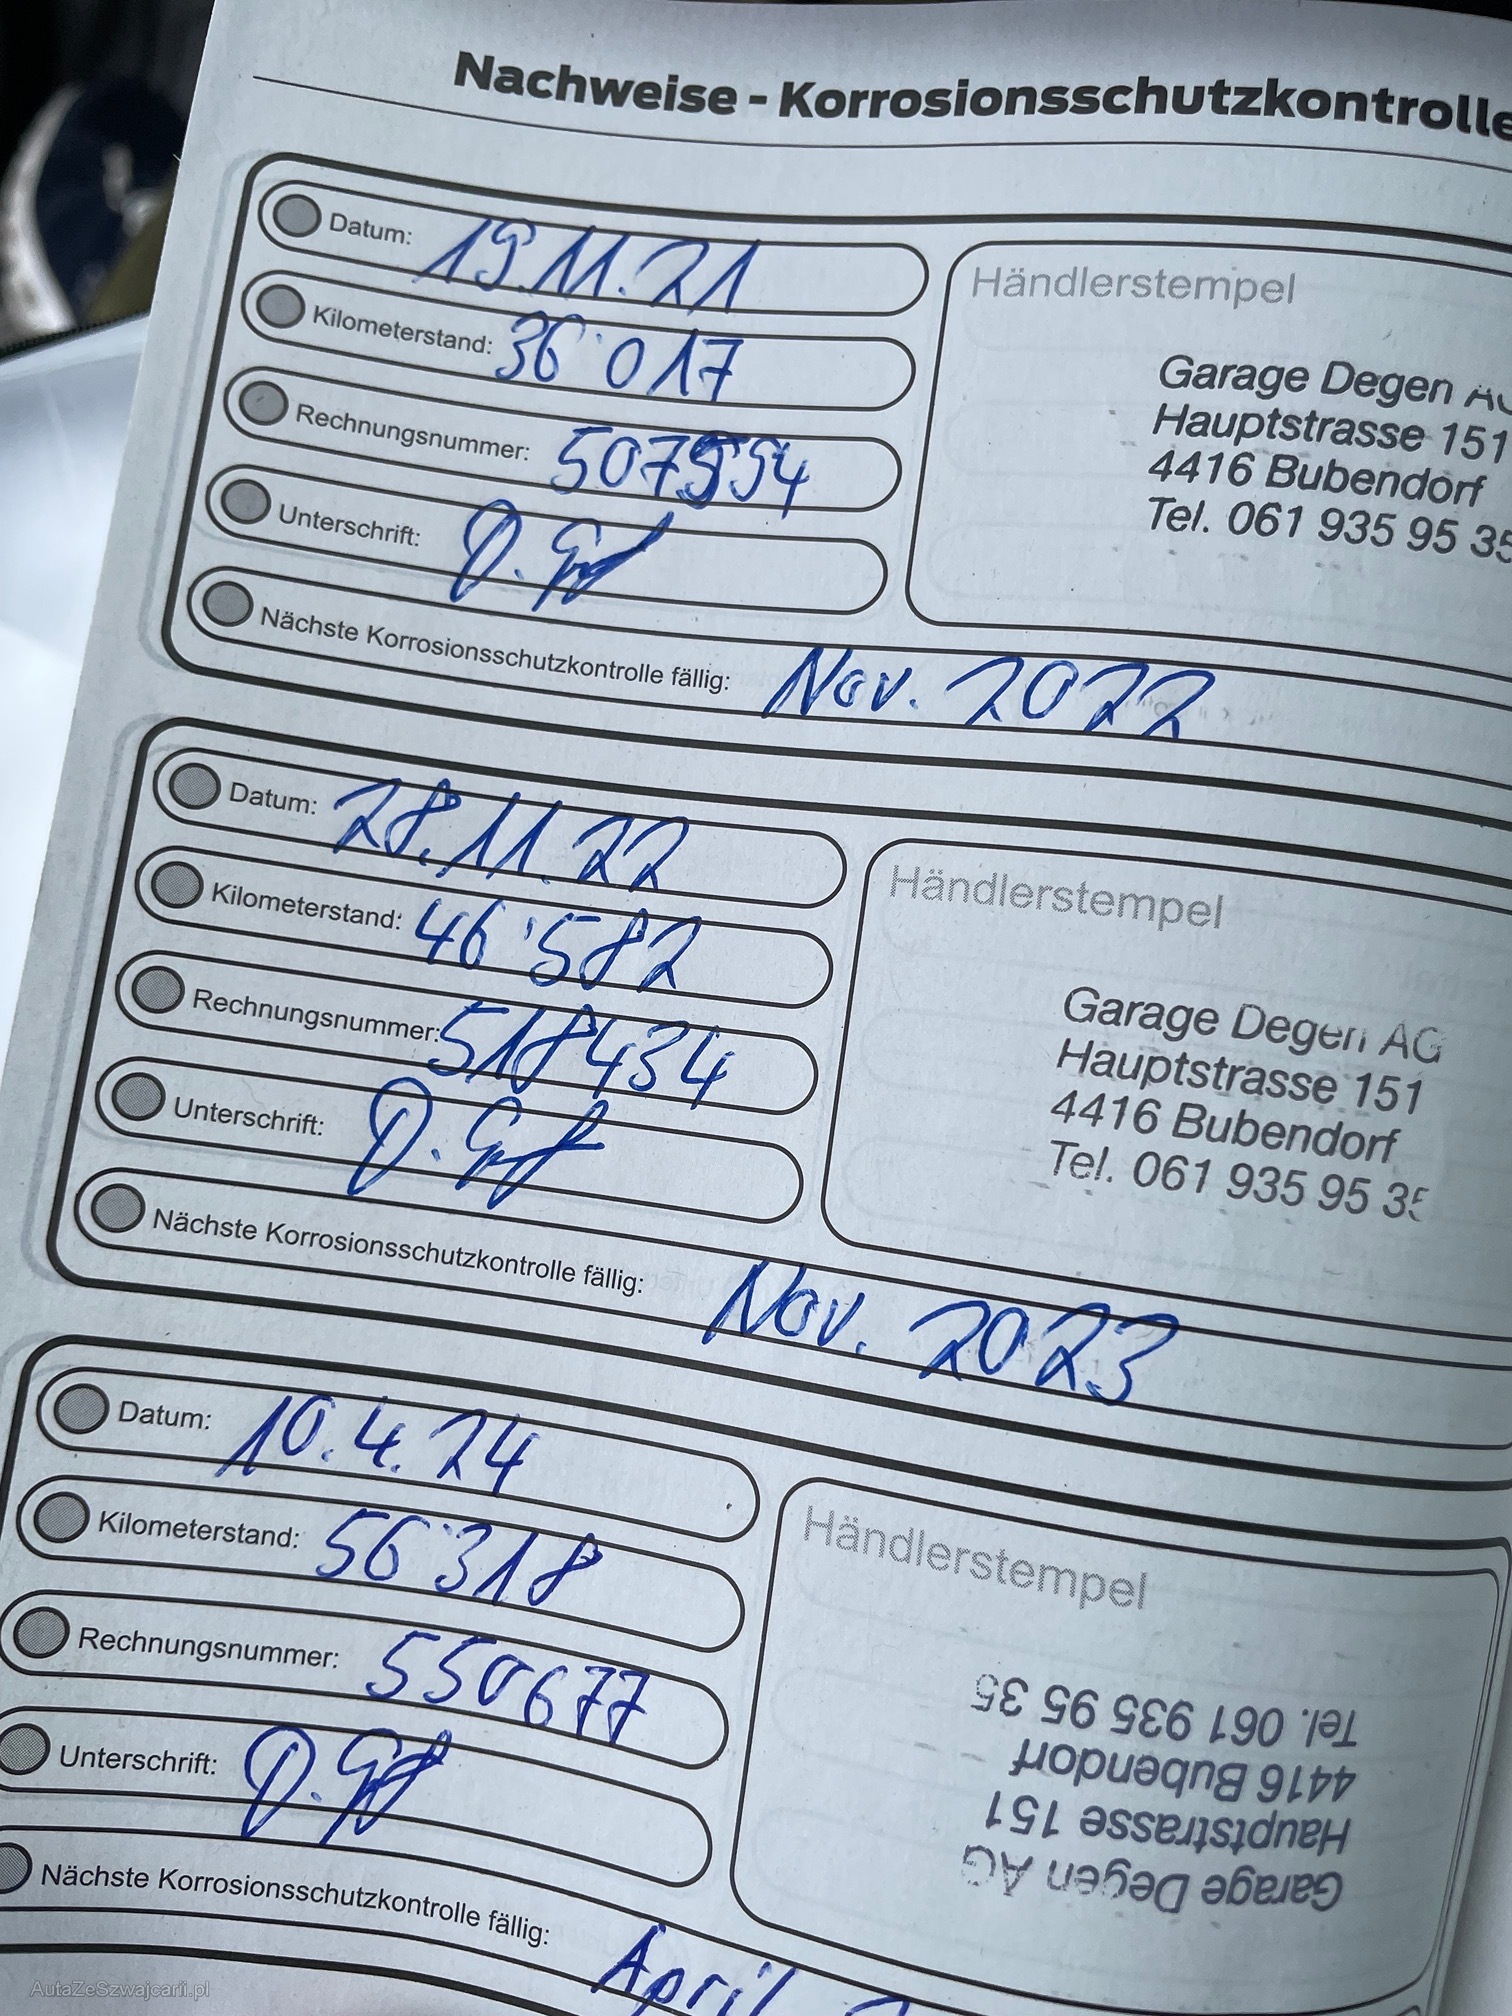 Nachweise - Korrosionsschutzkontrolle
Datum: 19.11.21
Kilometerstand: 36'017
Rechnungsnummer:
Unterschrift:
Nächste Korrosionsschutzkontrolle fällig: Nov. 2022
Händlerstempel
Garage Degen
Hauptstrasse 151
4416 Bubendorf
Tel. 061 935 95 35
Datum: 28.11.22
Kilometerstand: 46'582
Rechnungsnummer: 518434
Unterschrift:
Nächste Korrosionsschutzkontrolle fällig: Nov. 2023
Händlerstempel
Garage Degen AG
Hauptstrasse 151
4416 Bubendorf
Tel. 061 935 95 35
Datum: 10.4.24
Kilometerstand: 56'318
Rechnungsnummer: 550677
Unterschrift:
Nächste Korrosionsschutzkontrolle fällig: April
Händlerstempel
Garage Degen AG
Hauptstrasse 151
4416 Bubendorf
Tel. 061 935 95 35
AutaZeSzwajcarii.pl